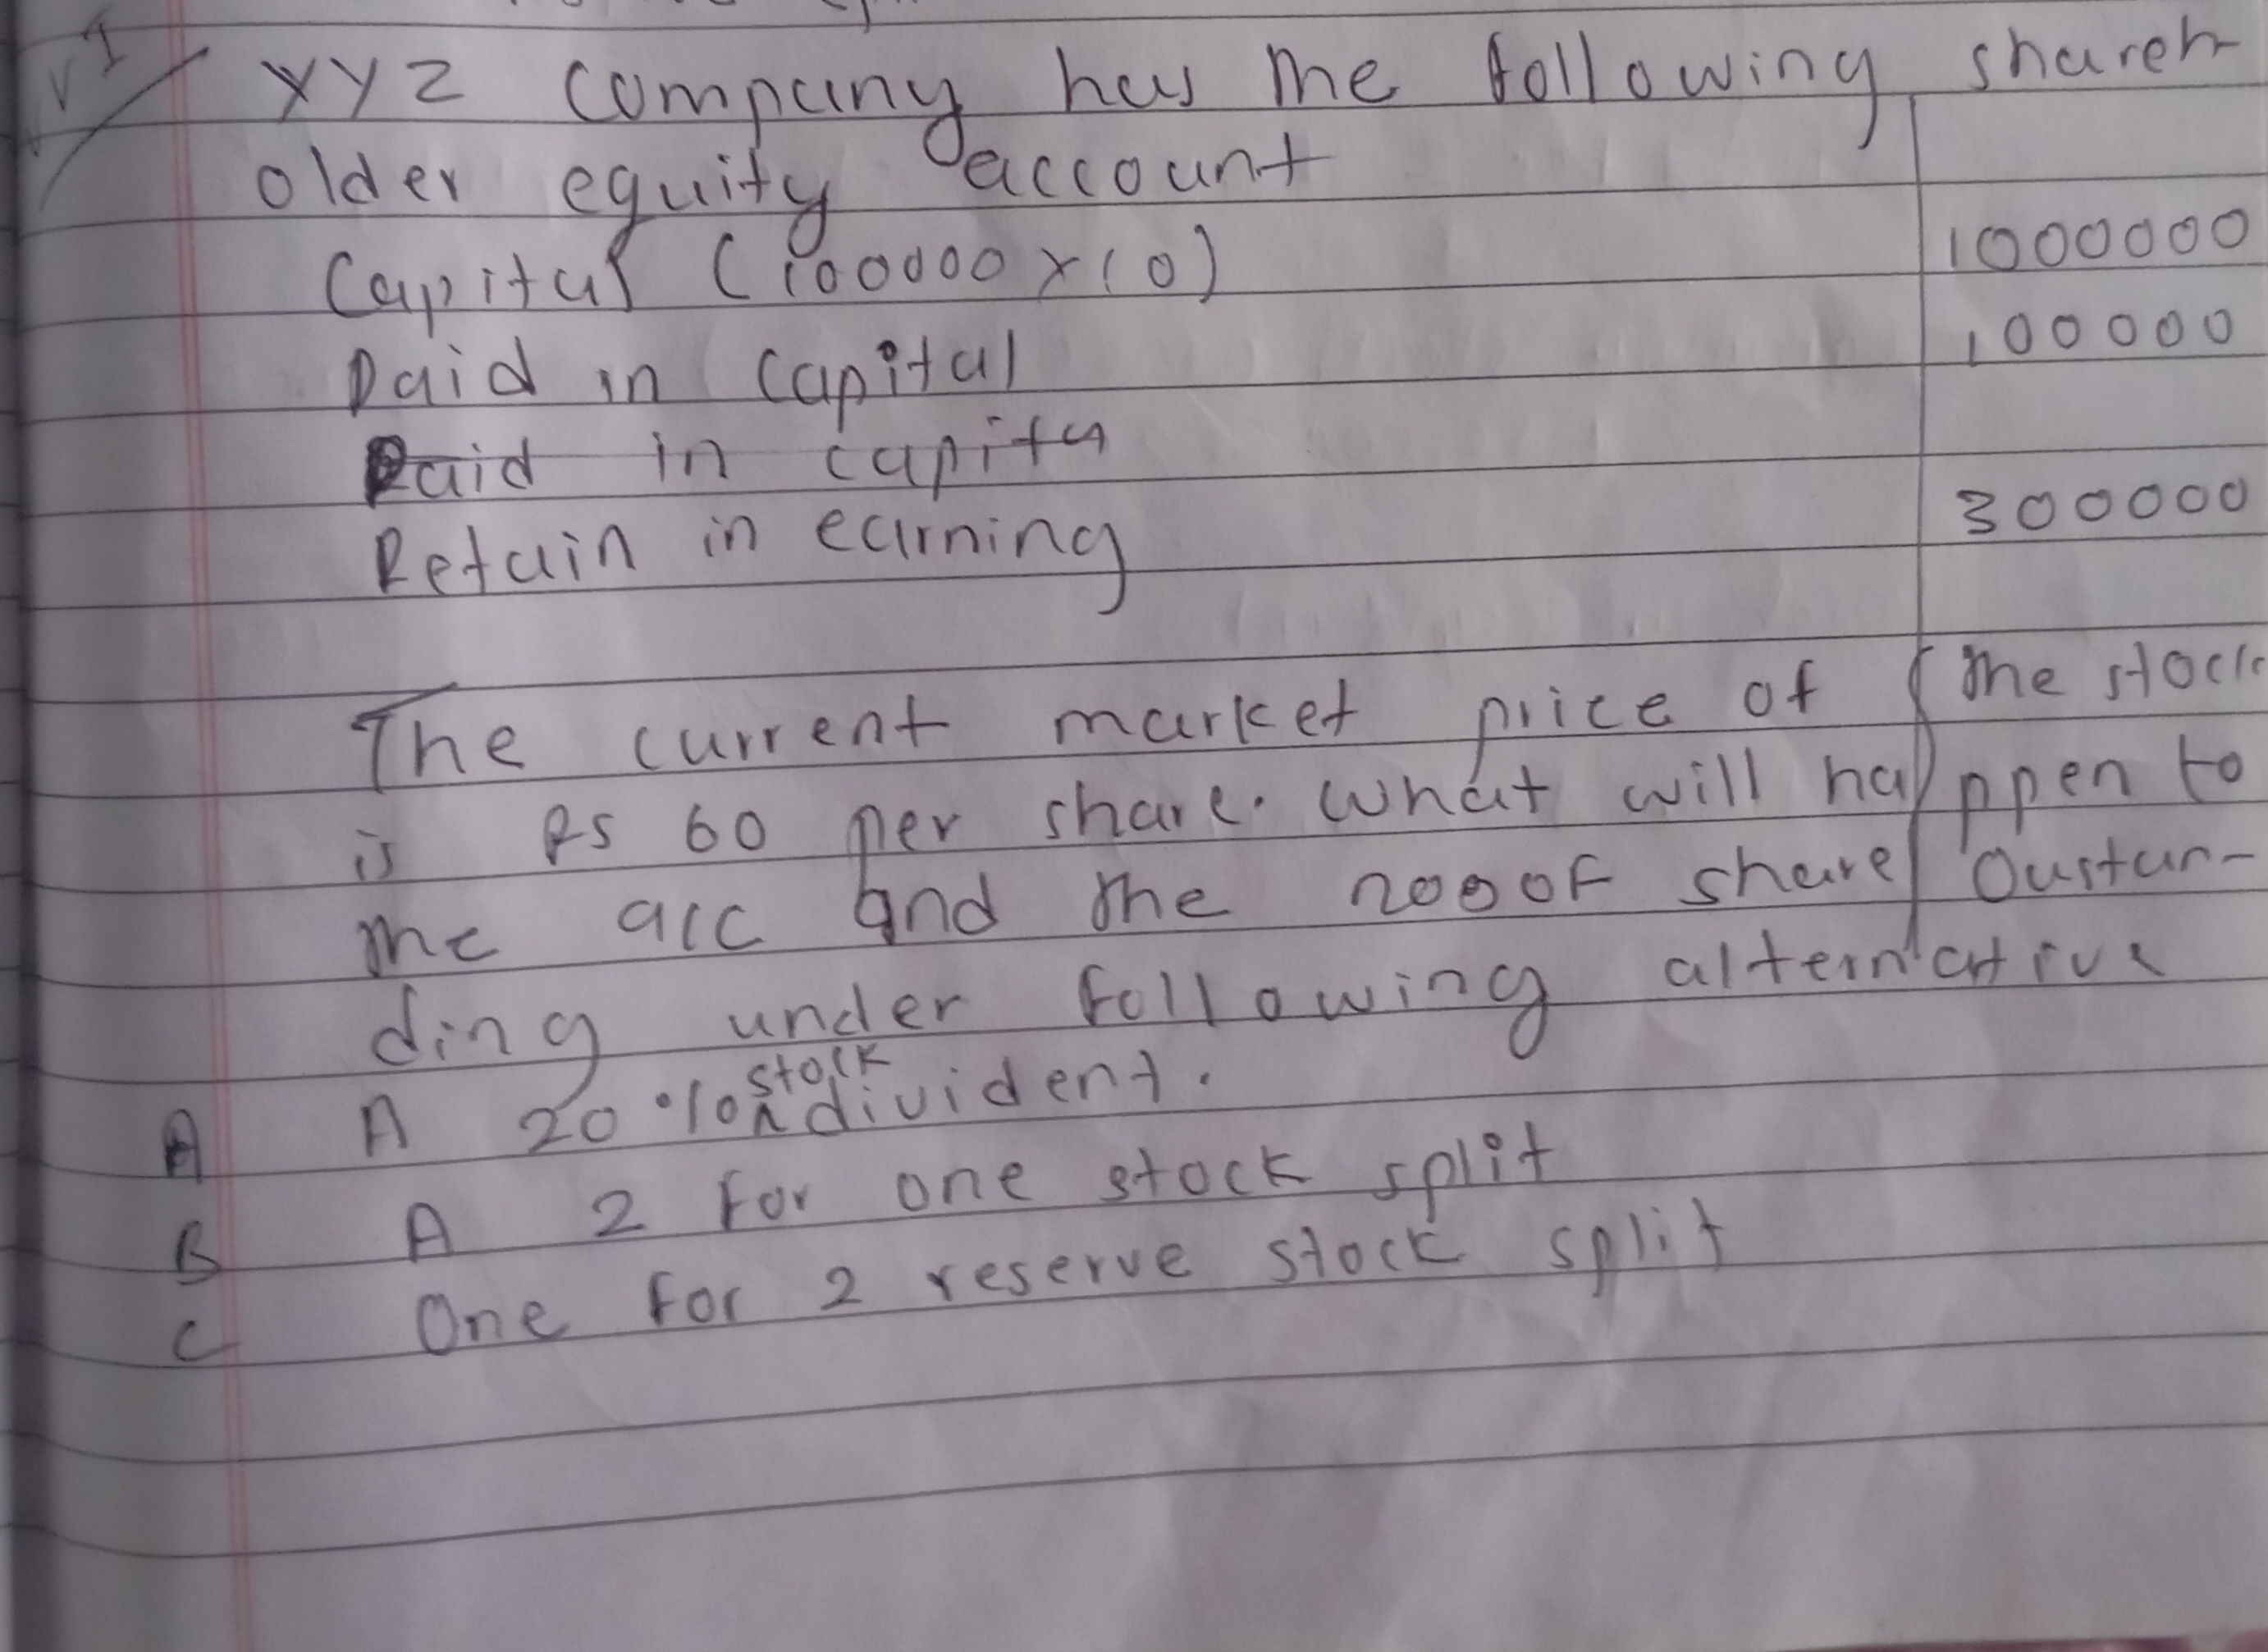 XYZ Company has the following shareh-
older equity account
Capital (100000 x 10) 1000000
Paid in Capital 100000
Paid in capita
Retain in earning 300000
The current market price of the stock
is Rs 60 per share. What will happen to
the a/c and the no of share Oustan-
ding under following alternative
A A 20% stock divident.
B A 2 for one stock split
C One for 2 reserve stock split